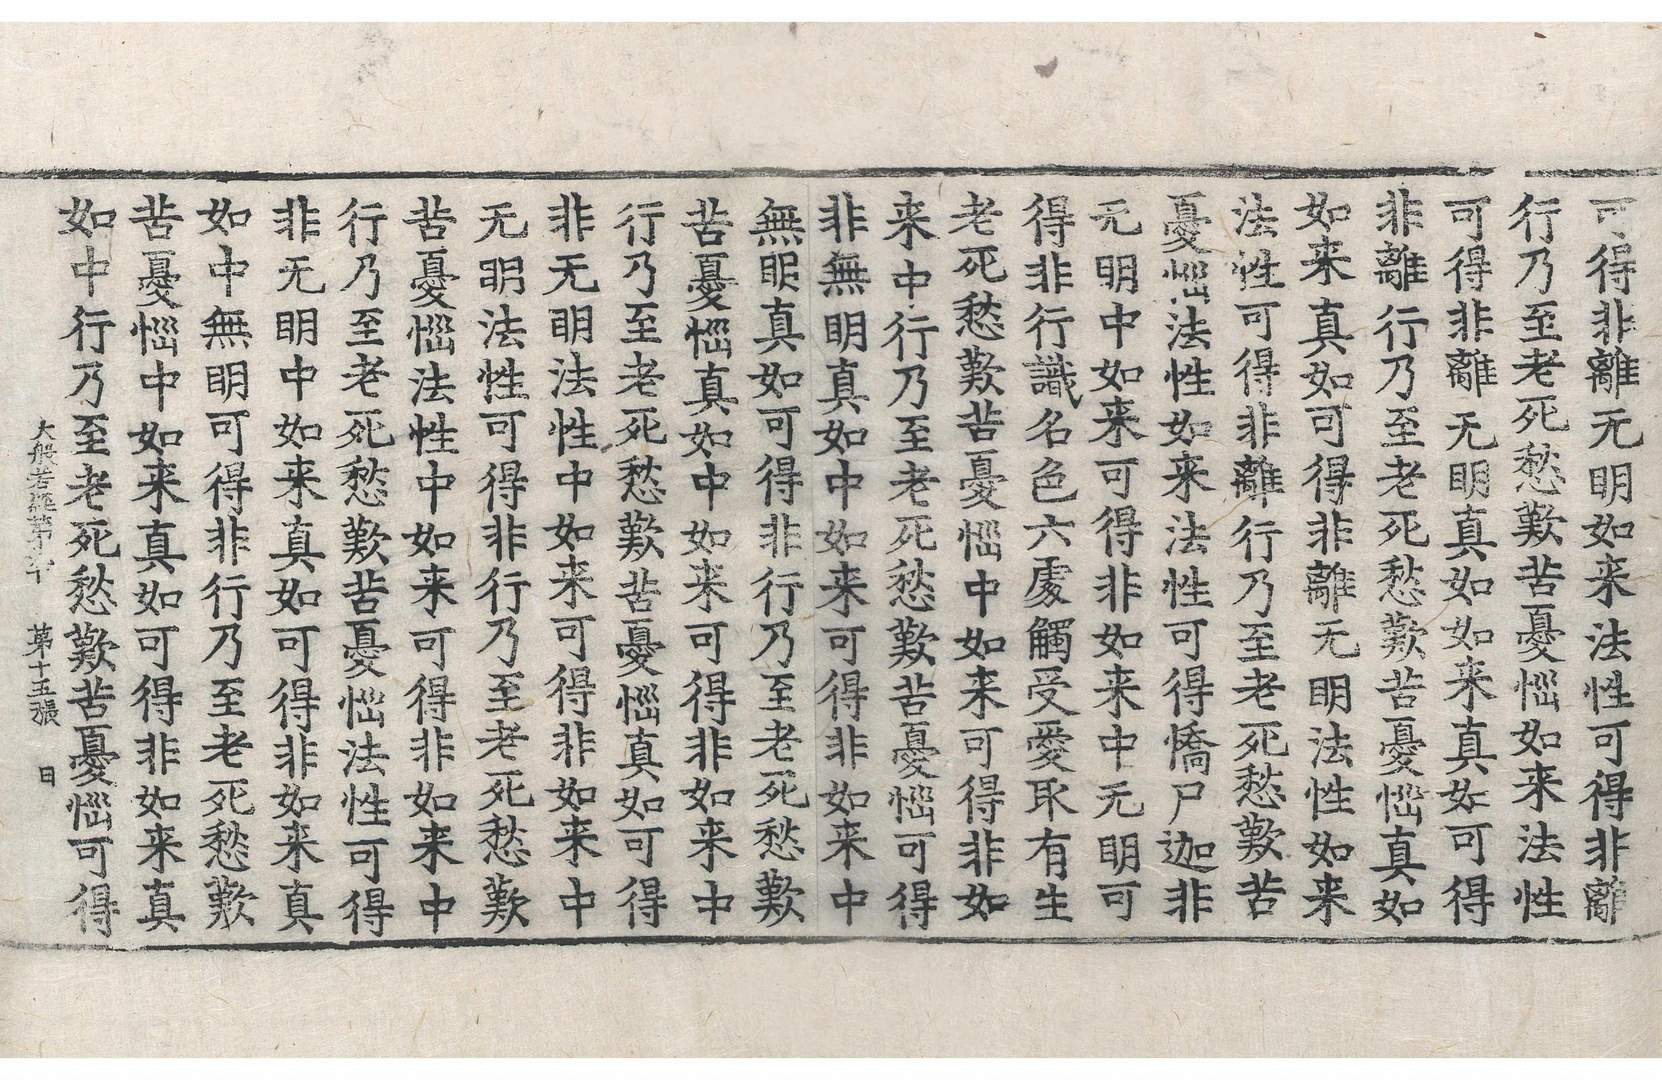 可得非離无明如来法性可得非離
行乃至老死愁歎苦憂惱如来法性
可得非離无明真如如来真如可得
非離行乃至老死愁歎苦憂惱真如
如来真如可得非離无明法性如来
法性可得非離行乃至老死愁歎苦
憂惱法性如来法性可得憍尸迦非
无明中如来可得非如来中无明可
得非行識名色六處觸受愛取有生
老死愁歎苦憂惱中如来可得非如
来中行乃至老死愁歎苦憂惱可得
非無明真如中如来可得非如来中
無明真如可得非行乃至老死愁歎
苦憂惱真如中如来可得非如来中
行乃至老死愁歎苦憂惱真如可得
非无明法性中如来可得非如来中
无明法性可得非行乃至老死愁歎
苦憂惱法性中如来可得非如来中
行乃至老死愁歎苦憂惱法性可得
非无明中如来真如可得非如来真
如中無明可得非行乃至老死愁歎
苦憂惱中如来真如可得非如来真
如中行乃至老死愁歎苦憂惱可得
大般若經第九十 第十五張 日